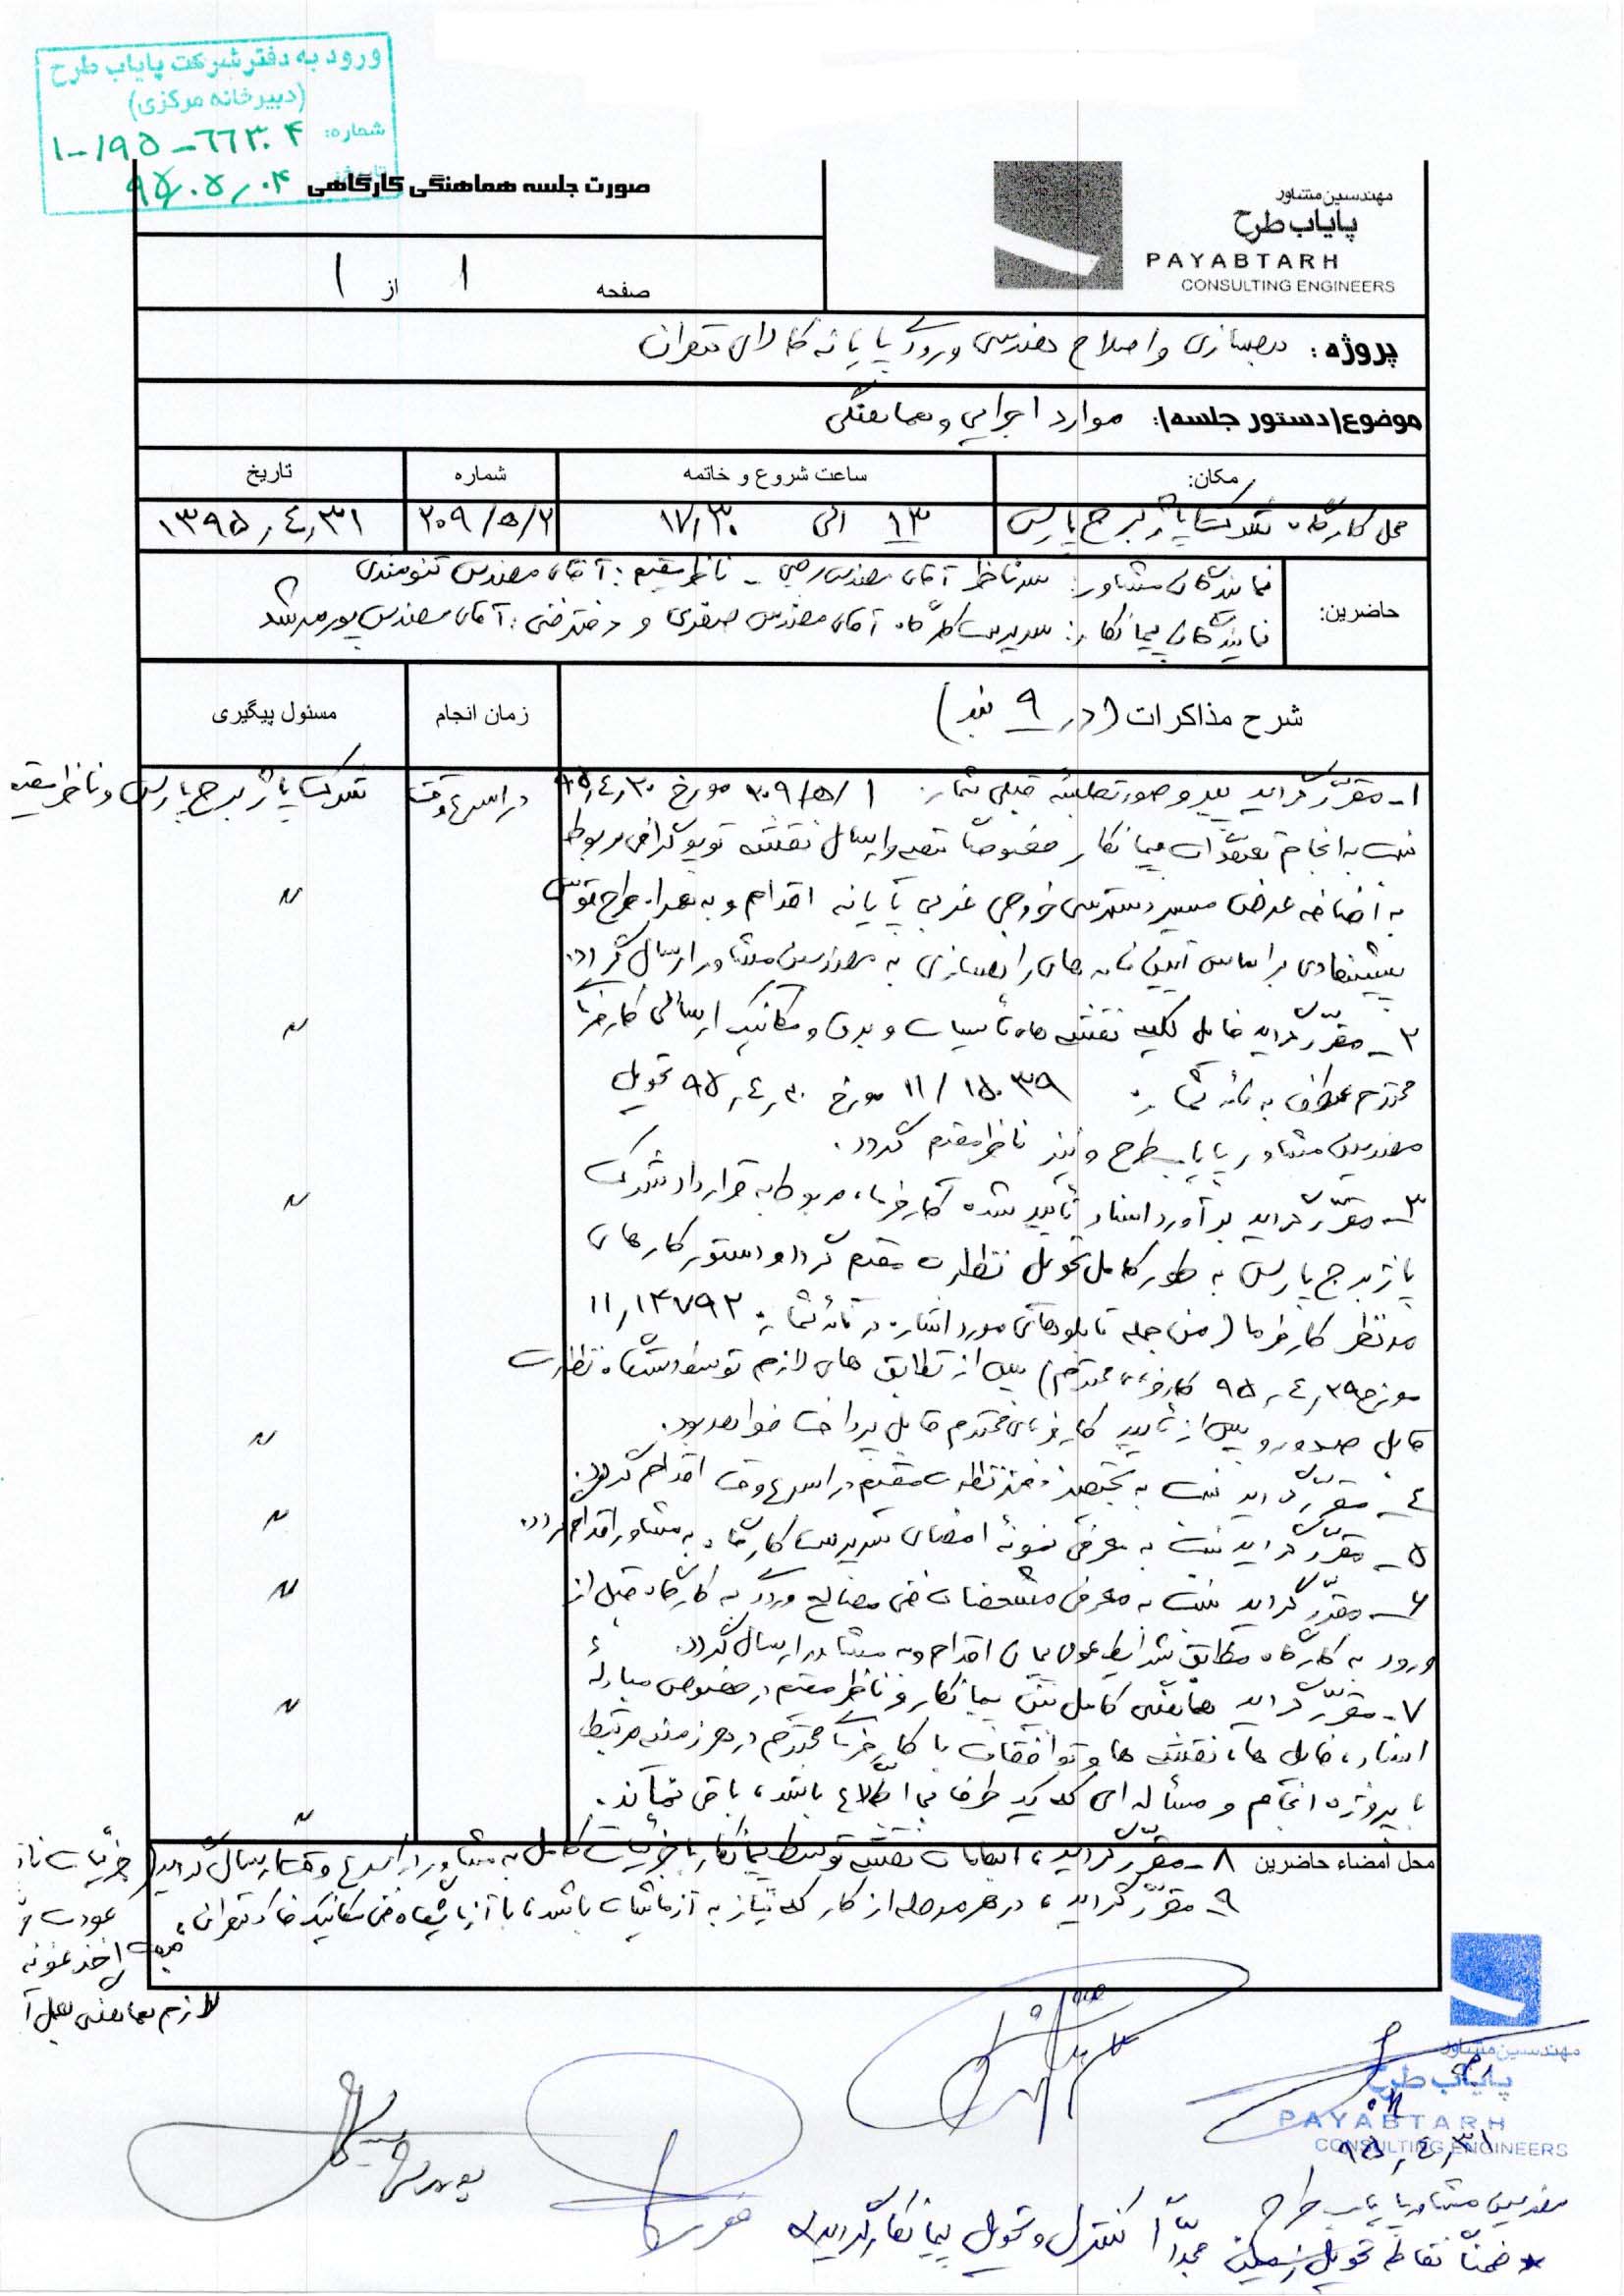 ورود به دفتر شرکت پایاب طرح
(دبیرخانه مرکزی)
شماره: ۱-۱۹۵-۶۶۳۰۴
۹۵٫۰۵٫۰۴
صورت جلسه هماهنگی کارگاهی
صفحه ۱ از ۱
مهندسین مشاور
پایاب طرح
PAYABTARH
CONSULTING ENGINEERS
پروژه: بهسازی و اصلاح هندسی ورودی پایانه کالای تهران
موضوع(دستور جلسه): موارد اجرایی و هماهنگی
مکان: ساعت شروع و خاتمه شماره تاریخ
محل کارگاه شرکت پاژ برج پارس ۱۳ الی ۱۷٫۳۰ ۲۰۹/۵/۲ ۱۳۹۵٫۴٫۳۱
حاضرین:
نمایندگان مشاور: سرناظر آقای مهندس رجبی - ناظر مقیم: آقای مهندس تنومندی
نمایندگان پیمانکار: سرپرست کارگاه آقای مهندس صفری و دفتر فنی: آقای مهندس پورمرشد
شرح مذاکرات (در ۹ بند) زمان انجام مسئول پیگیری
۱- مقرّر گردید پیرو صورتجلسه قبلی شماره ۲۰۹/۵/۱ مورخ ۹۵٫۴٫۳۰ در اسرع وقت شرکت پاژ برج پارس و ناظر مقیم
نسبت به انجام تعهدات پیمانکار خصوصاً تهیه و ارسال نقشه توپوگرافی مربوط
به اضافه عرض مسیر دسترسی خروجی غربی پایانه اقدام و به همراه طرح قوس
پیشنهادی بر اساس آیین نامه های راهسازی به مهندسین مشاور ارسال گردد.
۲- مقرّر گردید فایل کلیه نقشه های تأسیسات و برق و مکانیک ارسالی کارفرمای
محترم عطف به نامه شماره ۱۱/۱۵۰۳۹ مورخ ۹۵٫۴٫۳۰ تحویل
مهندسین مشاور پایاب طرح و نیز ناظر مقیم گردد.
۳- مقرّر گردید برآورد اسناد تأیید شده کارفرما، مربوط به قرارداد شرکت
پاژ برج پارس به طور کامل تحویل نظارت مقیم گردد و دستور کارهای
مد نظر کارفرما (من جمله تابلوهای مورد اشاره در نامه شماره ۱۱٫۱۴۷۹۲
مورخ ۹۵٫۴٫۲۹ کارفرمای محترم) پس از تطابق های لازم توسط دستگاه نظارت
قابل صدور و پس از تأیید کارفرمای محترم قابل پرداخت خواهد بود.
۴- مقرّر گردید نسبت به تجهیز دفتر نظارت مقیم در اسرع وقت اقدام گردد.
۵- مقرّر گردید نسبت به معرفی نمونه امضای سرپرست کارگاه به مشاور اقدام گردد.
۶- مقرّر گردید نسبت به معرفی مشخصات فنی مصالح ورودی به کارگاه قبل از
ورود به کارگاه مطابق شرایط عمومی پیمان اقدام و به مشاور ارسال گردد.
۷- مقرّر گردید هماهنگی کامل بین پیمانکار و ناظر مقیم در خصوص مبادله
اسناد، فایل ها، نقشه ها و توافقات با کارفرمای محترم در هر زمینه مرتبط
با پروژه انجام و مسأله ای که یک طرف بی اطلاع باشد، باقی نماند.
محل امضاء حاضرین ۸- مقرّر گردید، ابهامات نقشه توسط پیمانکار با جزئیات کامل به مشاور در اسرع وقت ارسال گردد
۹- مقرّر گردید، در هر مرحله از کار که نیاز به آزمایشات باشد، با آزمایشگاه فنی مکانیک خاک تهران،
جهت اخذ نمونه
لازم هماهنگی بعمل آ
مهندسین مشاور
پایاب طرح
PAYABTARH
CONSULTING ENGINEERS
۹۵٫۴٫۳۱
مهندسین مشاور پایاب طرح
* ضمناً نقاط تحویل زمین مجدّداً کنترل و تحویل پیمانکار گردید.